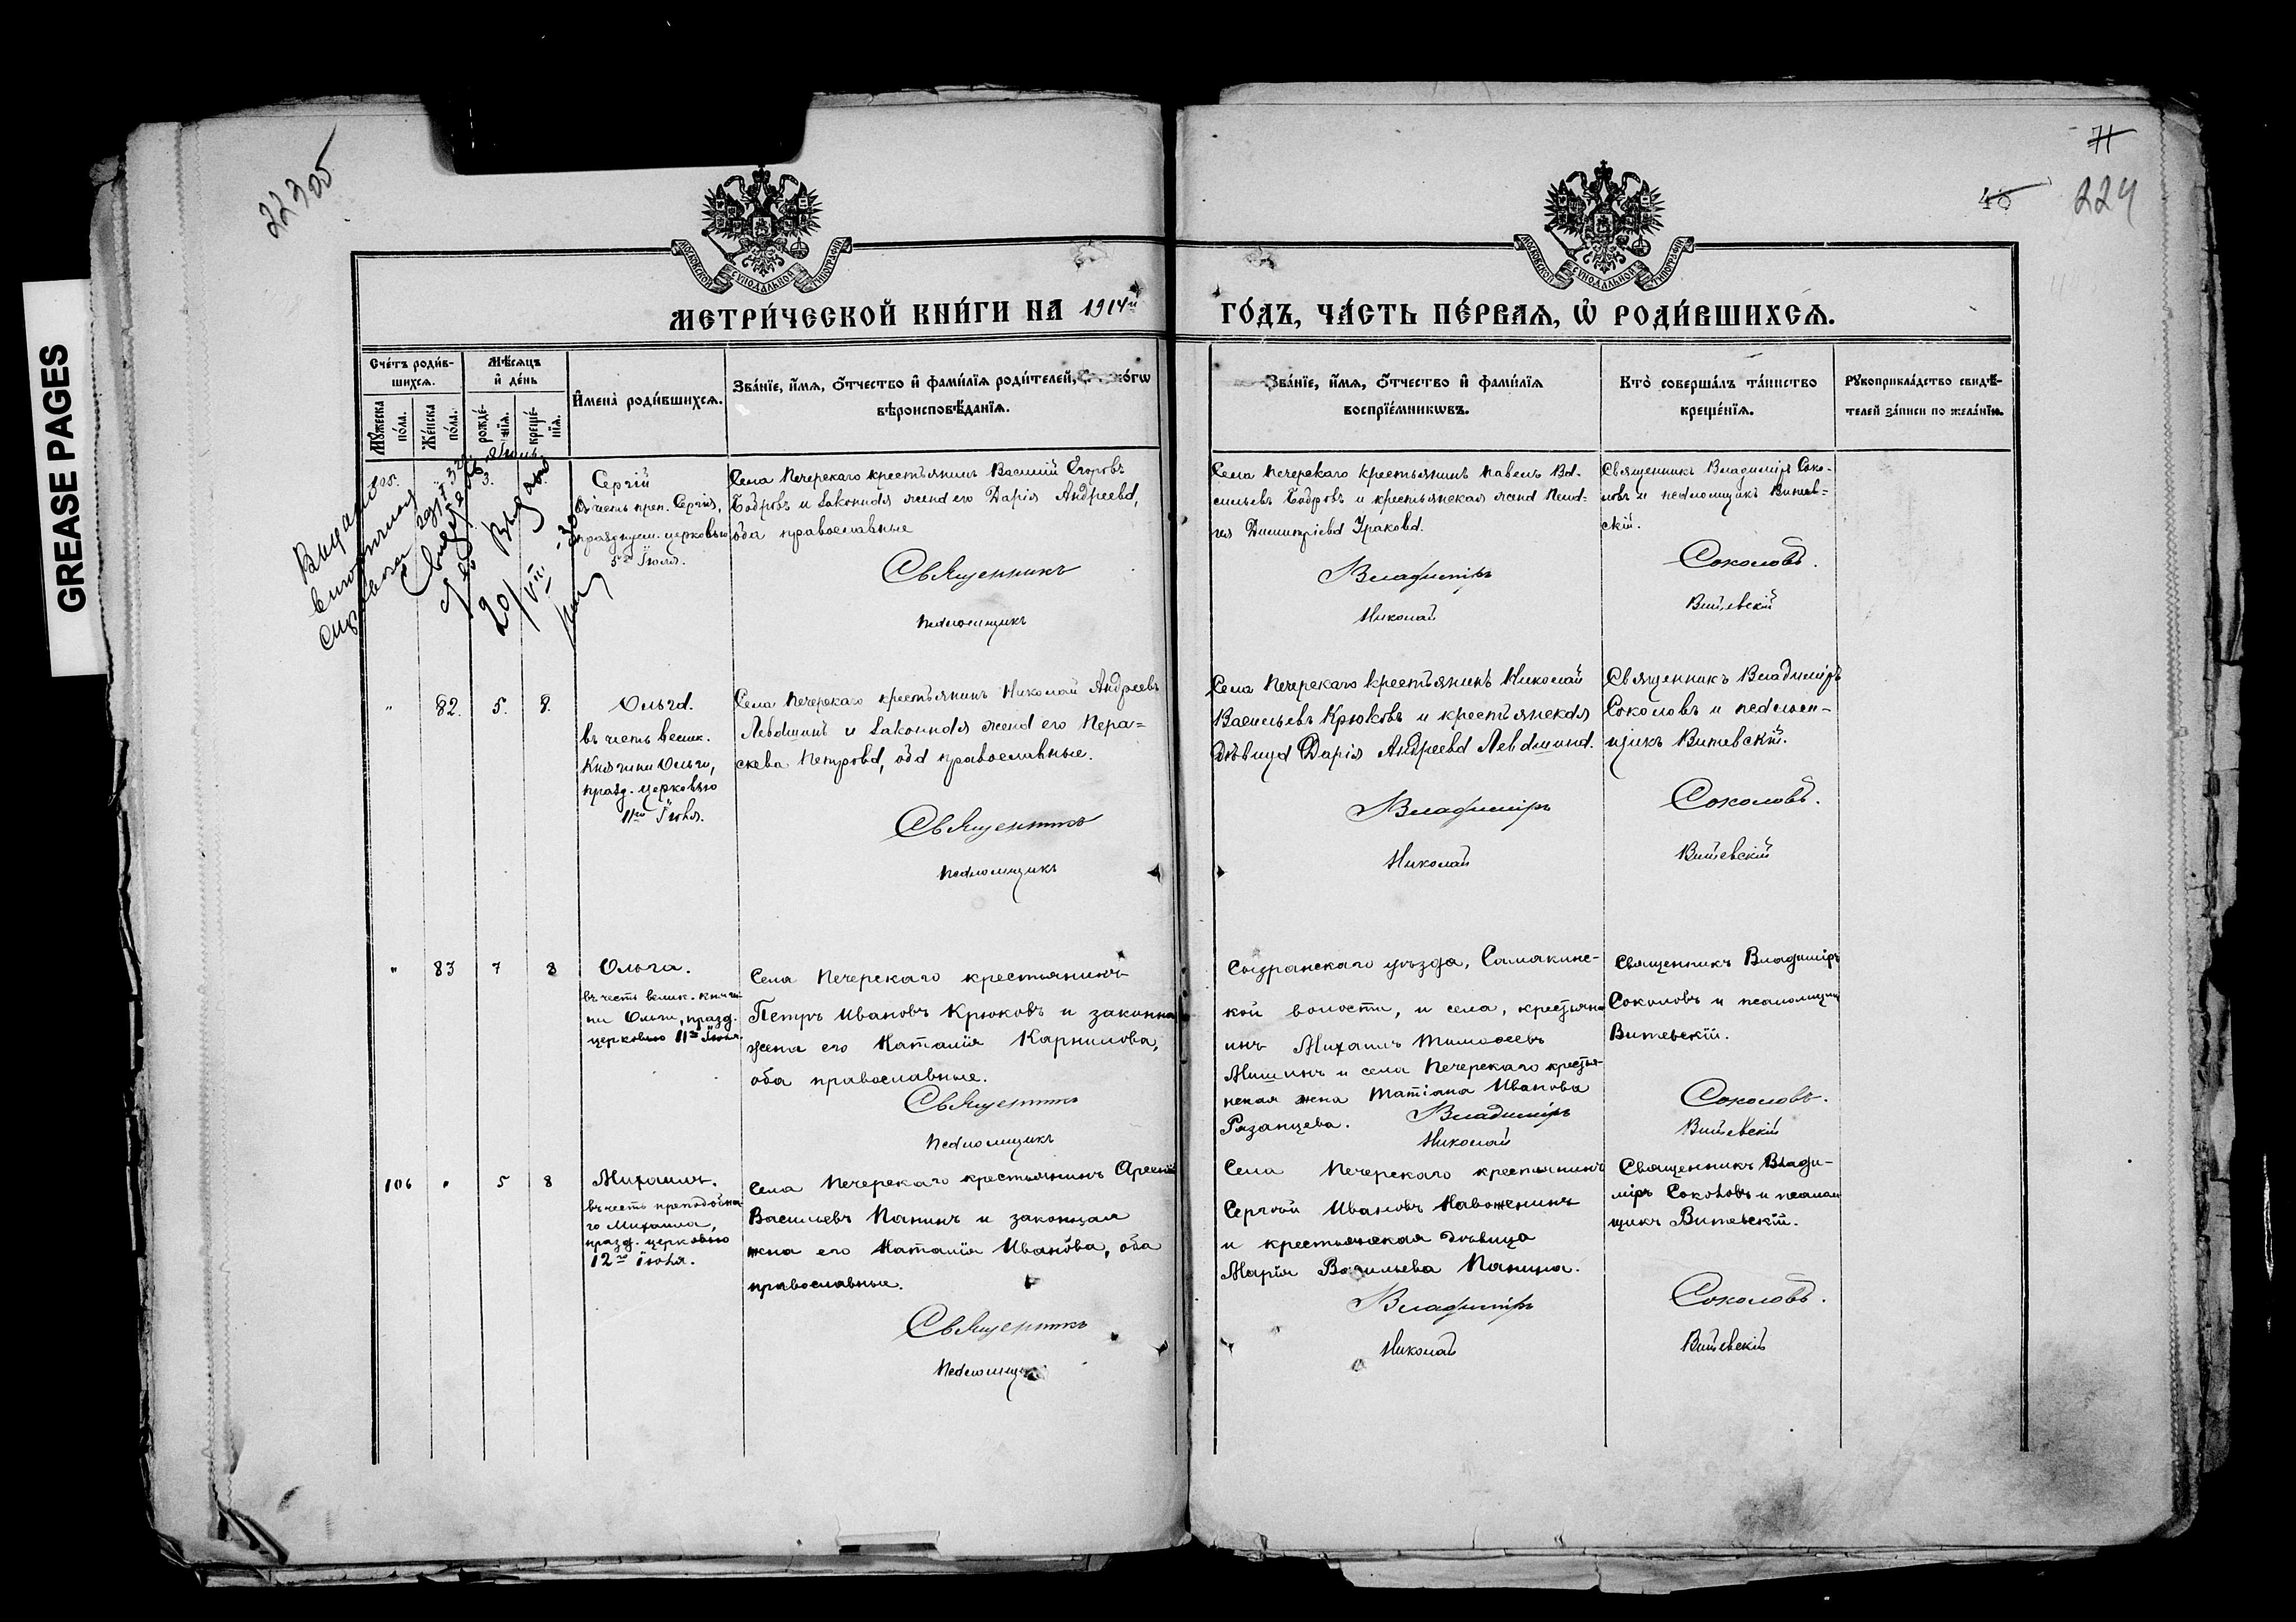 GREASE PAGES
22305
71
46
224
МОСКОВСКОЙ СѴНОДАЛЬНОЙ ТИПОГРАФІИ
МОСКОВСКОЙ СѴНОДАЛЬНОЙ ТИПОГРАФІИ
МЕТРИ́ЧЕСКОЙ КНИ́ГИ НА 1914й ГО́ДЪ, ЧА́СТЬ ПЕ́РВАЯ, Ѡ РОДИ́ВШИХСЯ.
Сче́тъ роди́в-
шихся.
Мѣ́сяцъ
и де́нь
Му́жеска
по́ла.
Же́нска
по́ла.
рожде́-
нїя.
креще́-
нїя.
Имена̀ роди́вшихся.
Зва́нїе, и́мя, о́тчество и фами́лїя роди́телей,
вѣроисповѣ́данїя.
Зва́нїе, и́мя, о́тчество и фами́лїя
воспрїе́мникѡвъ.
Кто̀ соверша́лъ та́инство
креще́нїя.
Рꙋкоприкла́дство свидѣ́-
телей за́писи по жела́нїю.
Іюль
3.
Сергій
въ честь преп. Сергія,
празднуем. церковью
5го Іюля.
Села Печерскаго крестьянинъ Василій Егоровъ
Бодровъ и законная жена его Дарія Андреева,
оба православные
Священникъ
Псаломщикъ
Села Печерскаго крестьянинъ Павелъ Ва-
сильевъ Бодровъ и крестьянская жена
Димитріева Уракова.
Владиміръ
Николай
Священникъ Владиміръ Соко-
ловъ и псаломщикъ Витев-
скій.
Соколовъ.
Витевскій
Выдано
справка
Выдано
20/VII-30
" 82. 5. 8.
Ольга.
въ честь велик.
Княгини Ольги,
празд. церковью
11го Іюля.
Села Печерскаго крестьянинъ Николай Андреевъ
Левашинъ и законная жена его Пера-
скева Петрова, оба православные.
Священникъ
Псаломщикъ
Села Печерскаго крестьянинъ Николай
Васильевъ Крюковъ и крестьянская
дѣвица Дарія Андреева Левашина.
Владиміръ
Николай
Священникъ Владиміръ
Соколовъ и псалом-
щикъ Витевскій.
Соколовъ.
Витевскій
" 83 7 8
Ольга.
въ честь велик. княги-
ни Ольги, празд.
церковью 11го Іюля.
Села Печерскаго крестьянинъ
Петръ Ивановъ Крюковъ и законна
жена его Наталія Карнилова,
оба православные.
Священникъ
Псаломщикъ
Сызранскаго уѣзда, Самакинс-
кой волости, и села, крестьяни-
инъ Михаилъ Тимоѳеевъ
Мишинъ и села Печерскаго крестья-
нская жена Татіана Иванова
Рязанцева. Владиміръ
Николай
Священникъ Владиміръ
Соколовъ и псаломщик
Витевскій.
Соколовъ.
Витевскій
106 " 5 8
Михаилъ.
въ честь преподобна-
го Михаила,
празд. церковью
12го Іюля.
Села Печерскаго крестьянинъ Арсеній
Васильевъ Панинъ и законная
жена его Наталія Иванова, оба
православные.
Священникъ
Села Печерскаго крестьянинъ
Сергѣй Ивановъ Навоженинъ
и крестьянская дѣвица
Марія Васильева Панина.
Владиміръ
Николай
Священникъ Влади-
міръ Соколовъ и псалом
щикъ Витевскій.
Соколовъ.
Витевскій